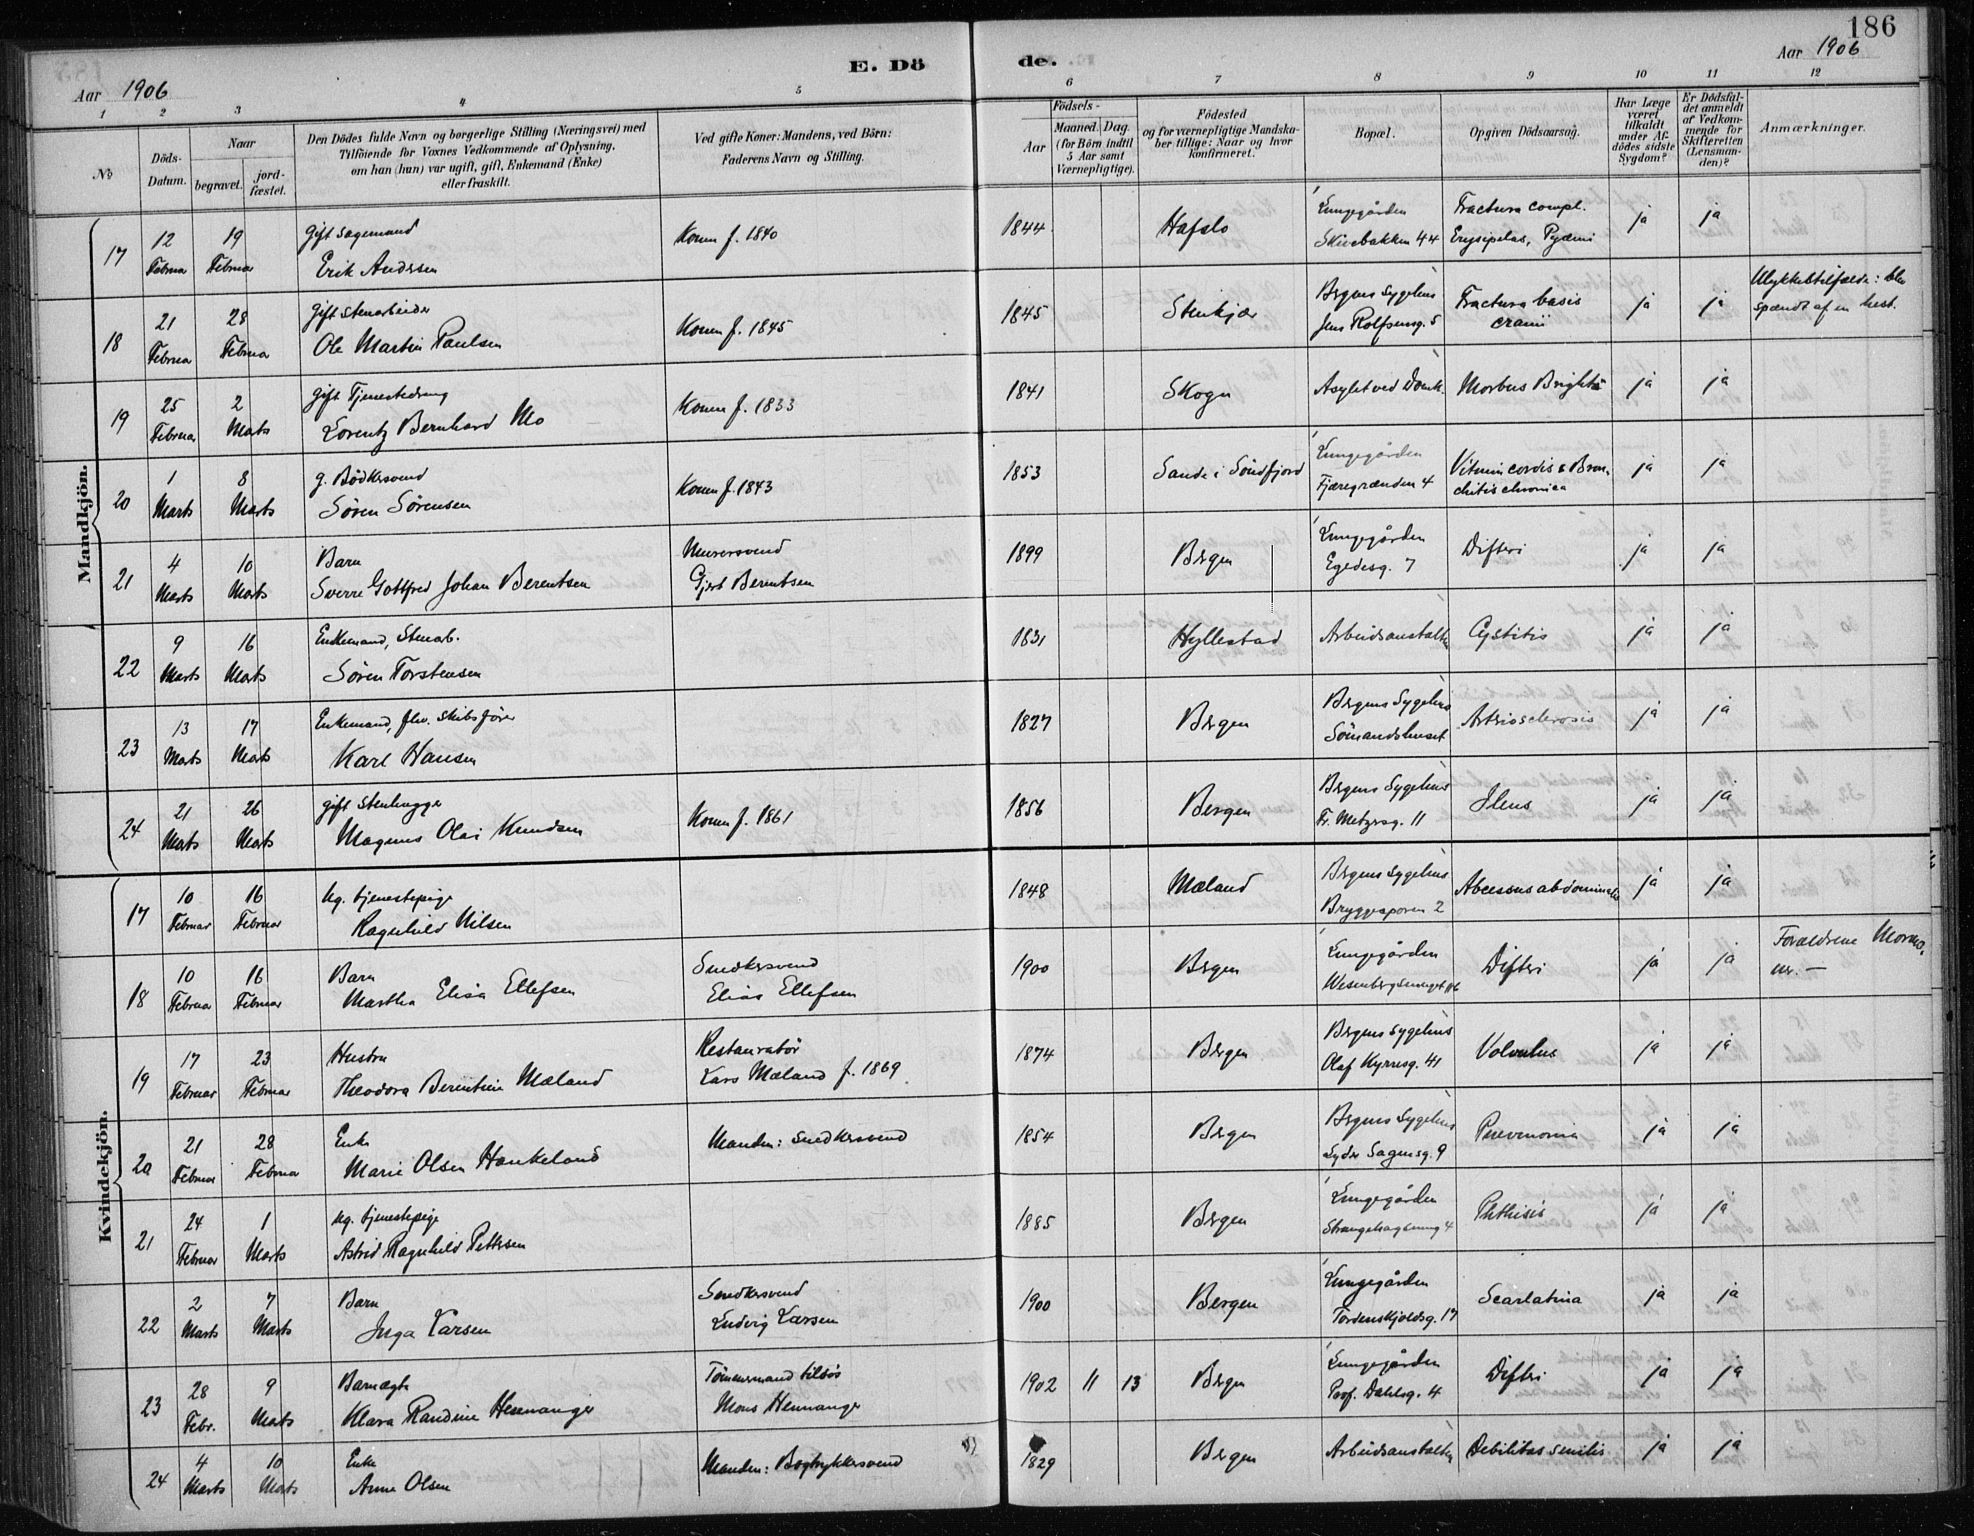 186
E. Döde.
Aar 1906
Aar 1906
1 2 3 4 5 6 7 8 9 10 11 12
No
Döds-Datum.
Naar
begravet. jordfæstet.
Den Dödes fulde Navn og borgerlige Stilling (Næringsvei) med
Tilföiende for Voxnes Vedkommende af Oplysning,
om han (hun) var ugift, gift, Enkemand (Enke)
eller fraskilt.
Ved gifte Koner: Mandens, ved Börn:
Faderens Navn og Stilling.
Födsels-
Aar
Maaned. Dag.
(for Börn indtil
5 Aar samt
Værnepligtige).
Födested
og for værnepligtige Mandskaber tillige: Naar og hvor
konfirmeret.
Bopæl.
Opgiven Dödsaarsag.
Har Læge
været
tilkaldt
under Afdödes sidste
Sygdom?
Er Dödsfaldet anmeldt
af Vedkommende for
Skifteretten
(Lensmanden)?
Anmærkninger.
Mandkjön.
17 12 Februar 19 Februar Gift sagemand Erik Anderssen Konen f. 1840 1844 Hafslo Lungegården Skivebakken 44 Fractura compl. Erysipelas, Pyæmi ja ja
18 21 Februar 28 Februar Gift stenarbeider Ole Martin Paulsen Konen f. 1845 1845 Stenkjær Bergens Sygehus Jens Rolfsensg. 5 Fractura basis cranii ja ja Ulykkestilfælde: blev spændt af en hest.
19 25 Februar 2 Marts Gift Tjenestedreng Lorentz Bernhard Mo Konen f. 1833 1841 Skogn Asylet ved Domk. Morbus Brightii ja ja
20 1 Marts 8 Marts g. Bödkersvend Sören Sörensen Konen f. 1843 1853 Sande i Söndfjord Lungegården Fjæregrænden 4 Vitium cordis & Bronchitis chronica ja ja
21 4 Marts 10 Marts Barn Sverre Gottfred Johan Berentsen Murersvend Gjert Berentsen 1899 Bergen Lungegården Egedesg. 7 Difteri ja ja
22 9 Marts 16 Marts Enkemand, Stenarb. Sören Torstensen 1831 Hyllestad Arbeidsanstalten Cystitis ja ja
23 13 Marts 17 Marts Enkemand, fhv. Skibsförer Karl Hansen 1827 Bergen Bergens Sygehus Sömandshuset Artriosclerosis ja ja
24 21 Marts 26 Marts gift Stenhugger Magnus Olai Knudsen Konen f. 1861 1856 Bergen Bergens Sygehus Fr. Meltzersg. 11 Ileus ja ja
Kvindekjön.
17 10 Februar 16 Februar Ug. tjenestepige Ragnhild Nilsen 1848 Mæland Bergens Sygehus Bryggesporen 2 Abcessus abdominalis ja ja
18 10 Februar 16 Februar Barn Martha Elisa Ellefsen Snedkersvend Elias Ellefsen 1900 Bergen Lungegården Wesenbergsmuget 116 Difteri ja ja Forældrene Mormoner. —
19 17 Februar 23 Februar Hustru Theodora Berentine Mæland Restauratör Lars Mæland f. 1869 1874 Bergen Bergens Sygehus Olaf Kyrresg. 41 Volvulus ja ja
20 21 Februar 28 Februar Enke Marie Olsen Haukeland Manden: Snedkersvend 1854 Bergen Bergens Sygehus Lyder Sagensg. 9 Pnevmonia ja ja
21 24 Februar 1 Marts Ug. tjenestepige Astrid Ragnhild Pettersen 1885 Bergen Lungegården Strangehagsmug 4 Phthisis ja ja
22 2 Marts 7 Marts Barn Inga Larsen Snedkersvend Ludvig Larsen 1900 Bergen Lungegården Tordenskjoldsg. 17 Scarlatina ja ja
23 28 Febr. 9 Marts Barn ægte Klara Randine Hennanger Tömmermand tilsös Mons Hennanger 1902 11 13 Bergen Lungegården Prof. Dahlsg. 4 Difteri ja ja
24 4 Marts 10 Marts Enke Anne Olsen Manden: Bogtrykkersvend 1829 Bergen Arbeidsanstalten Debilitas senilis ja ja